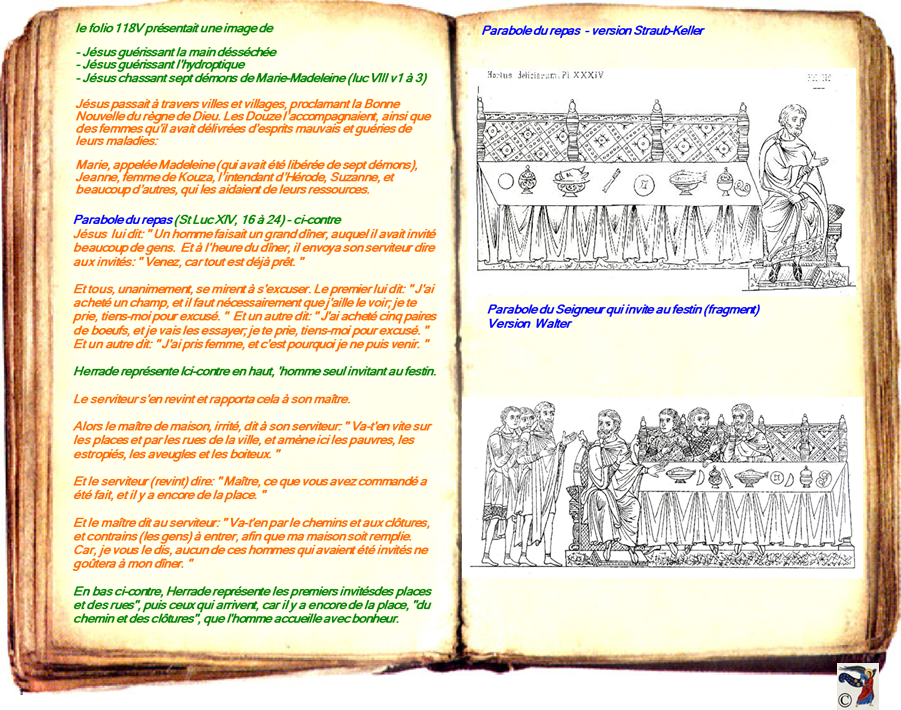 le folio 118V présentait une image de
- Jésus guérissant la main désséchée
- Jésus guérissant l'hydroptique
- Jésus chassant sept démons de Marie-Madeleine (luc VIII v1 à 3)
Jésus passait à travers villes et villages, proclamant la Bonne
Nouvelle du règne de Dieu. Les Douze l'accompagnaient, ainsi que
des femmes qu'il avait délivrées d'esprits mauvais et guéries de
leurs maladies:
Marie, appelée Madeleine (qui avait été libérée de sept démons),
Jeanne, femme de Kouza, l'intendant d'Hérode, Suzanne, et
beaucoup d'autres, qui les aidaient de leurs ressources.
Parabole du repas (St Luc XIV, 16 à 24) - ci-contre
Jésus lui dit: " Un homme faisait un grand dîner, auquel il avait invité
beaucoup de gens. Et à l'heure du dîner, il envoya son serviteur dire
aux invités: " Venez, car tout est déjà prêt. "
Et tous, unanimement, se mirent à s'excuser. Le premier lui dit: " J'ai
acheté un champ, et il faut nécessairement que j'aille le voir; je te
prie, tiens-moi pour excusé. " Et un autre dit: " J'ai acheté cinq paires
de boeufs, et je vais les essayer; je te prie, tiens-moi pour excusé. "
Et un autre dit: " J'ai pris femme, et c'est pourquoi je ne puis venir. "
Herrade représente Ici-contre en haut, 'homme seul invitant au festin.
Le serviteur s'en revint et rapporta cela à son maître.
Alors le maître de maison, irrité, dit à son serviteur: " Va-t'en vite sur
les places et par les rues de la ville, et amène ici les pauvres, les
estropiés, les aveugles et les boiteux. "
Et le serviteur (revint) dire: " Maître, ce que vous avez commandé a
été fait, et il y a encore de la place. "
Et le maître dit au serviteur: " Va-t'en par le chemins et aux clôtures,
et contrains (les gens) à entrer, afin que ma maison soit remplie.
Car, je vous le dis, aucun de ces hommes qui avaient été invités ne
goûtera à mon dîner. "
En bas ci-contre, Herrade représente les premiers invitésdes places
et des rues", puis ceux qui arrivent, car il y a encore de la place, "du
chemin et des clôtures", que l'homme accueille avec bonheur.
Parabole du repas - version Straub-Keller
Hortus deliciarum. Pl XXXIV
Parabole du Seigneur qui invite au festin (fragment)
Version Walter
©